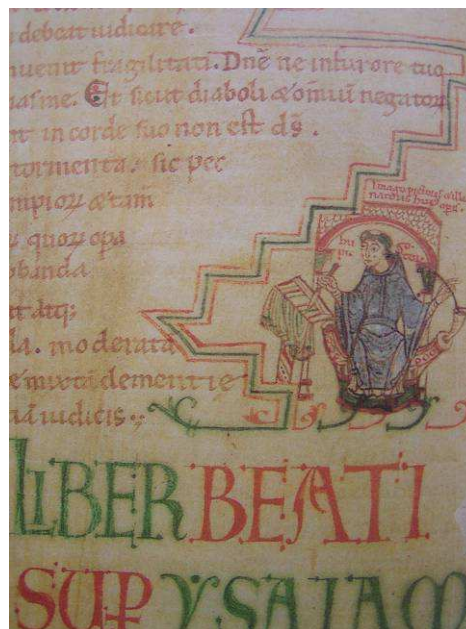 debeat iudicare.
uenit fragilitati. Dnē ne infurore tuo
asme. Et sicut diaboli & omniū negatorū
nt in corde suo non est d̄s.
tormenta. sic pec
mpioꝝ & tam
quoꝝ opa
obanda
nt atq;
la. moderata
e mixta clementie
iudicis.
Imago pictoris & illu
natoris huius opis.
hu go
pi ctor
LIBER BEATI
SUP YSAIAM